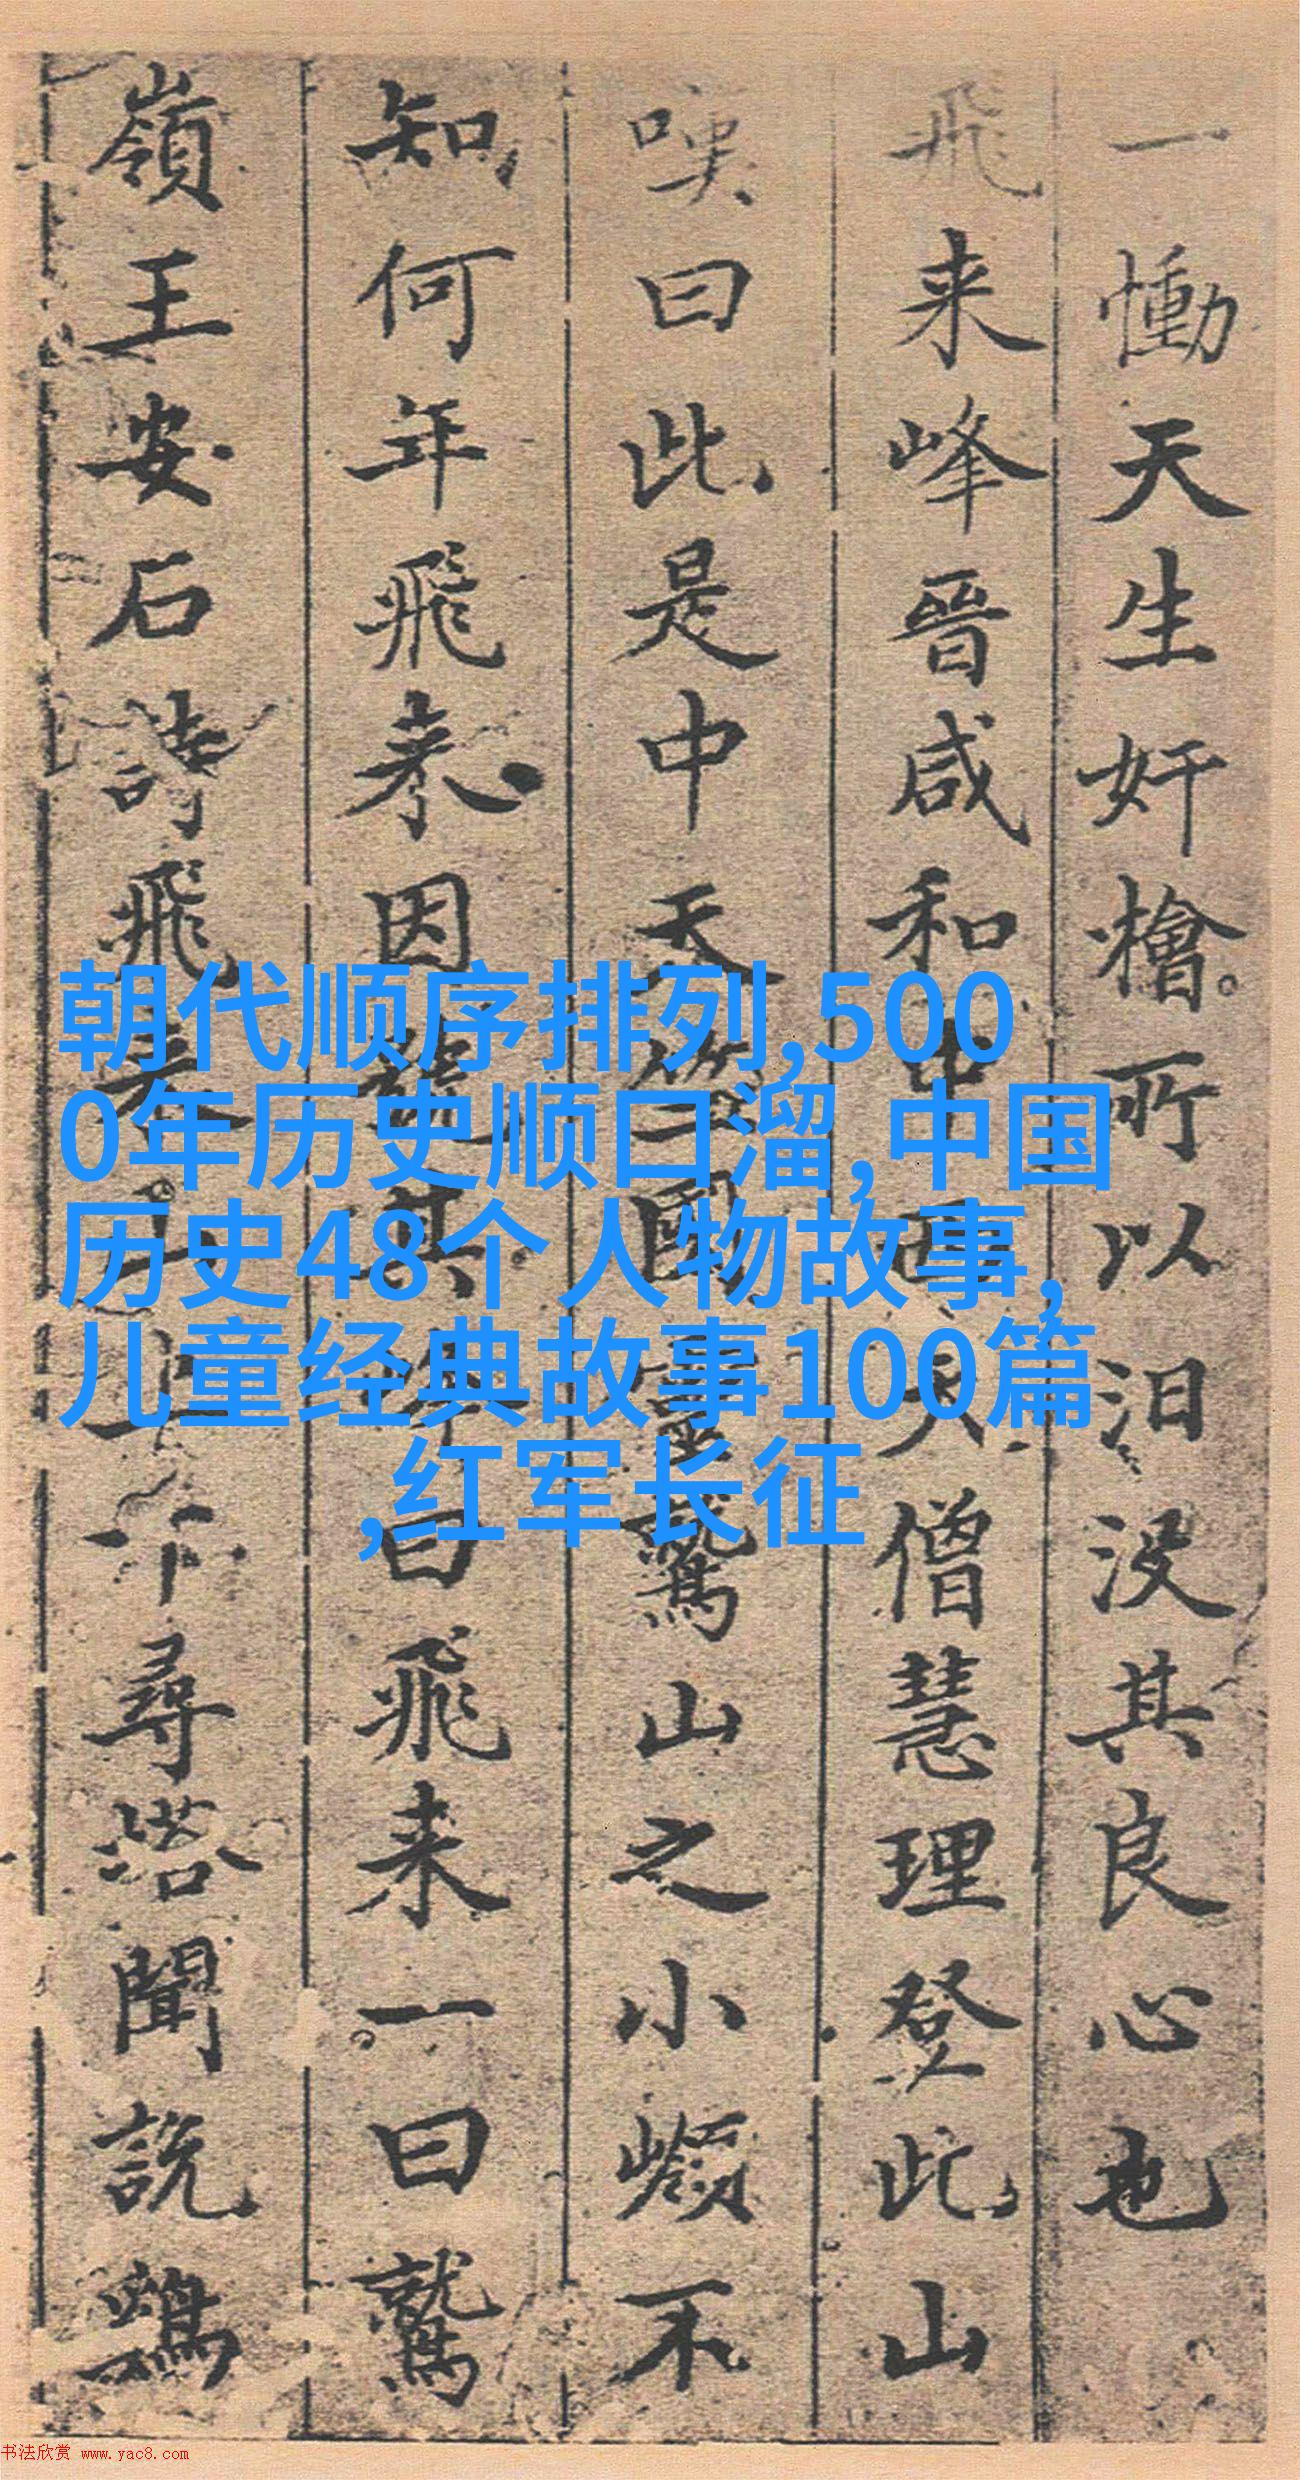 一慟天生奸檜所以汨没其良心也
飛来峰晉咸和中西天僧慧理登此山
嘆曰此是中天竺國靈鷲山之小嶺不
知何年飛来因號其峰曰飛来一曰鷲
嶺王安石詩飛来山上千尋塔聞説鷄
朝代顺序排列,500
0年历史顺口溜,中国
历史48个人物故事,
儿童经典故事100篇
,红军长征
书法欣赏 www.yac8.com